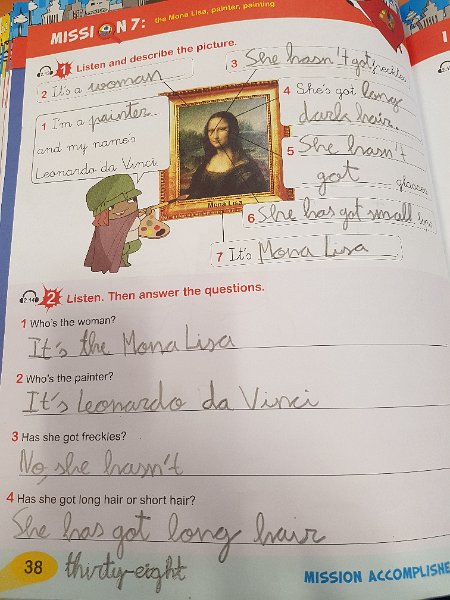 MISSION 7: the Mona Lisa, painter, painting
1 Listen and describe the picture.
2 It's a woman
3 She hasn't got freckles
1 I'm a painter
and my name's
Leonardo da Vinci.
4 She's got long
dark hair.
5 She hasn't
got glasses
Mona Lisa
6 She has got small lips
7 It's Mona Lisa
2 Listen. Then answer the questions.
1 Who's the woman?
It's the Mona Lisa
2 Who's the painter?
It's Leonardo da Vinci
3 Has she got freckles?
No, she hasn't
4 Has she got long hair or short hair?
She has got long hair
38 thirty-eight
MISSION ACCOMPLISHE